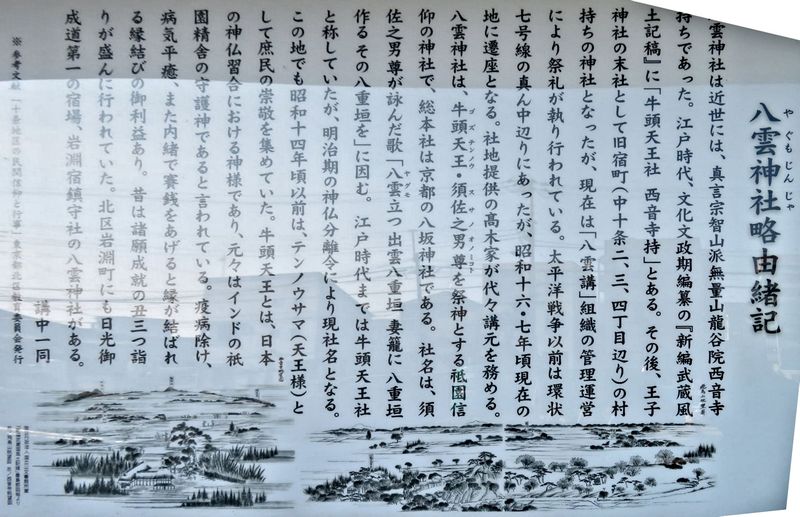 八雲神社略由緒記
やぐもじんじゃ
雲神社は近世には、真言宗智山派無量山龍谷院西音寺
持ちであった。江戸時代、文化文政期編纂の『新編武蔵風
土記稿』に「牛頭天王社 西音寺持」とある。その後、王子
神社の末社として旧宿町(中十条・二、三、四丁目辺り)の村
持ちの神社となったが、現在は「八雲講」組織の管理運営
により祭礼が執り行われている。太平洋戦争以前は環状
七号線の真ん中辺りにあったが、昭和十六・七年頃現在の
地に遷座となる。社地提供の髙木家が代々講元を務める。
八雲神社は、牛頭天王・須佐之男尊を祭神とする祗園信
ゴズテンノウ スサノオノミコト
仰の神社で、総本社は京都の八坂神社である。社名は、須
佐之男尊が詠んだ歌「八雲立つ 出雲八重垣 妻籠に 八重垣
ヤグモ
作る その八重垣を」に因む。江戸時代までは牛頭天王社
と称していたが、明治期の神仏分離令により現社名となる。
この地でも昭和十四年頃以前は、テンノウサマ(天王様)と
して庶民の崇敬を集めていた。牛頭天王とは、日本
の神仏習合における神様であり、元々はインドの祇
園精舎の守護神であると言われている。疫病除け、
病気平癒、また内緒で賽銭をあげると縁が結ばれ
る縁結びの御利益あり。昔は諸願成就の丑三つ詣
りが盛んに行われていた。北区岩淵町にも日光御
成道第一の宿場、岩淵宿鎮守社の八雲神社がある。
講中一同
※ 参考文献 「十条地区の民間信仰と行事」東京都北区教育委員会発行